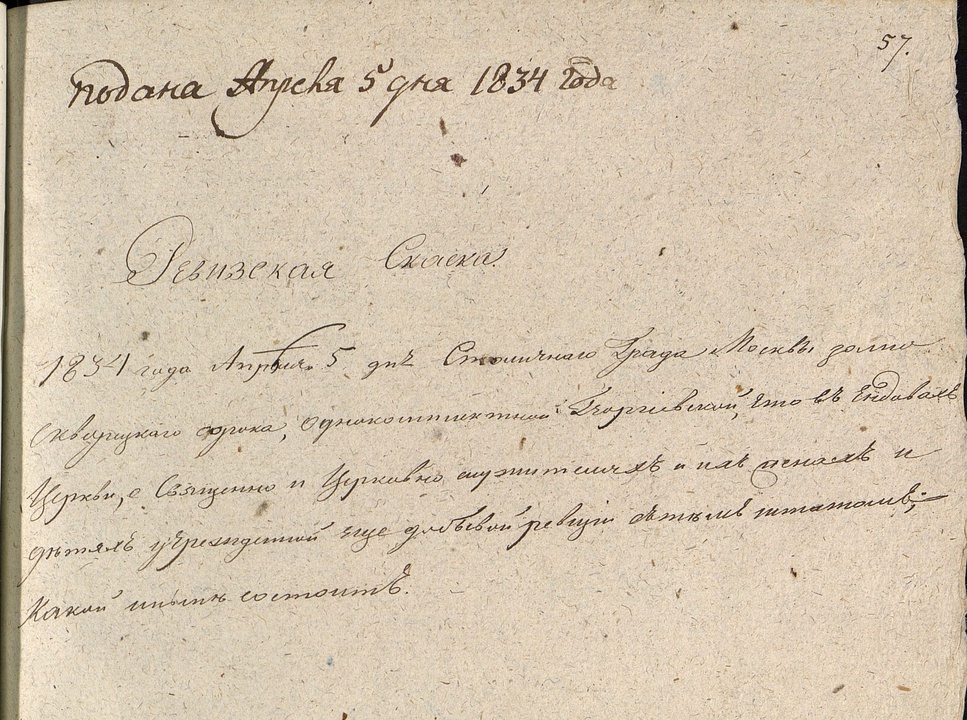 57.
подана Апреля 5 дня 1834 года
Ревизская Скаска.
1834 года Апреля 5 дня Столичнаго Града Москвы замо
скворецкаго сорока, однокомплектной Георгіевской, что въ Ендовахъ
Церкви, о Священно и Церковно служителяхъ и ихъ женахъ и
детяхъ учрежденной еще до
ревизіи штатомъ,
какой ныне состоитъ.